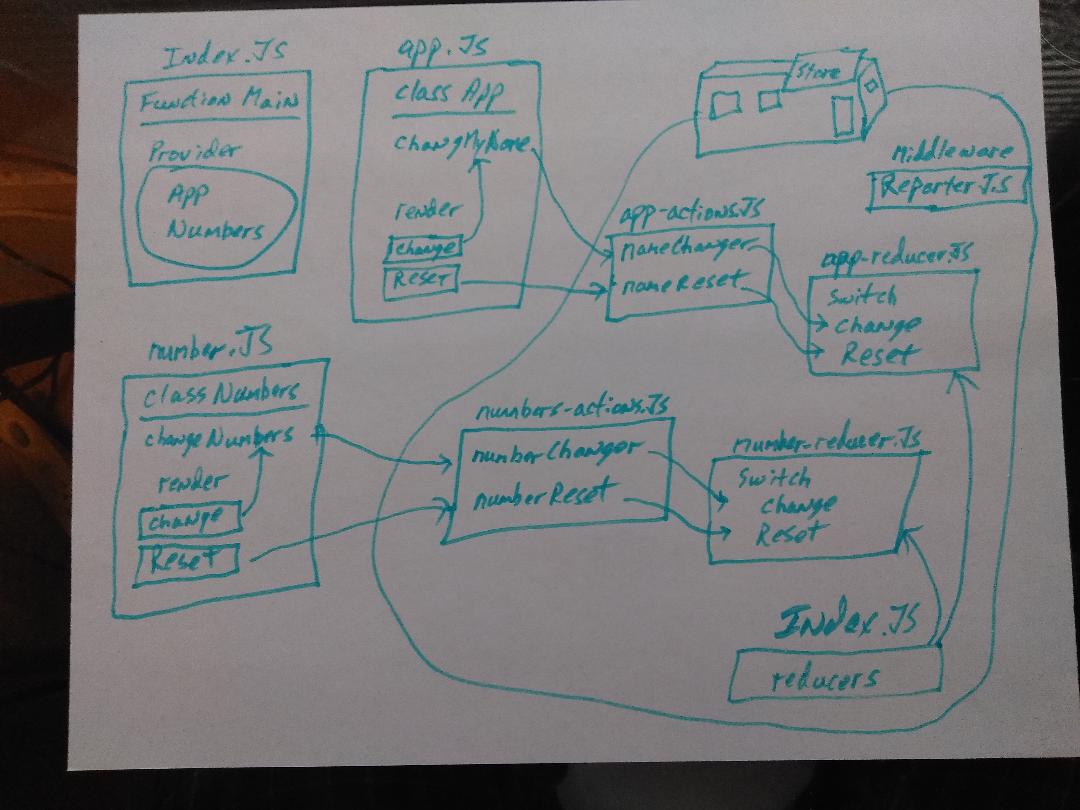 Index.JS
Function Main
Provider
App
Numbers
app.Js
class App
changMyName
render
change
Reset
Store
Middleware
ReporterJ.S
app-actions.Js
nameChanger
nameReset
app-reducer.Js
Switch
change
Reset
number.JS
class Numbers
change Numbers
render
change
Reset
numbers-actions.Js
numberChanger
numberReset
number-reducer.Js
Switch
change
Reset
Index.JS
reducers